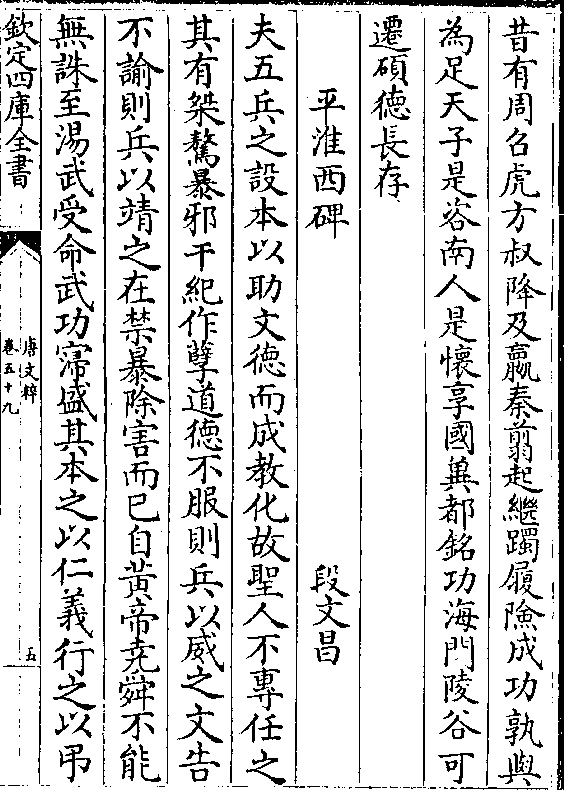 昔有周召虎方叔降及嬴秦翦起繼躅履險成功孰與
為足天子是咨南人是懷享國冀都銘功海門陵谷可
遷碩德長存
平淮西碑　段文昌
夫五兵之設本以助文德而成教化故聖人不專任之
其有桀驁暴邪干紀作孽道德不服則兵以威之文告
不諭則兵以靖之在禁暴除害而已自黃帝堯舜不能
無誅至湯武受命武功寖盛其本之以仁義行之以弔
欽定四庫全書
唐文粹
卷五十九
五